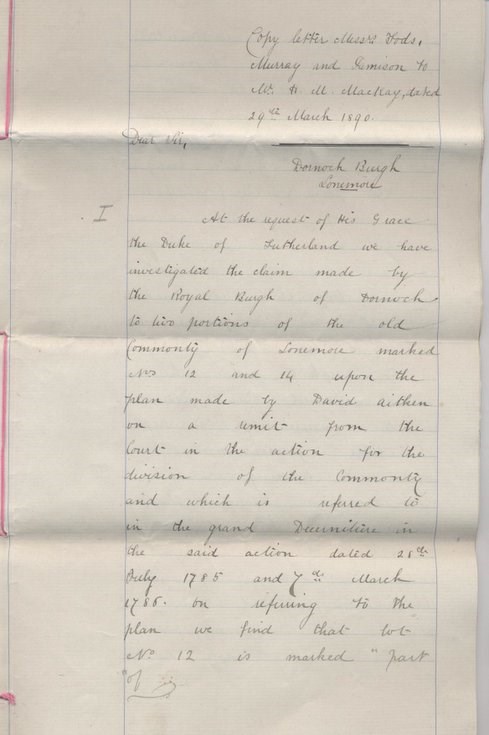 Copy letter Messrs Dods,
Murray and Jemison to
Mr. H. M. Mackay, dated
29th March 1890.
Dear Sir,
Dornoch Burgh
Lonemore
I
At the request of His Grace
the Duke of Sutherland we have
investigated the claim made by
the Royal Burgh of Dornoch
to two portions of the old
Commonty of Lonemore marked
Nos 12 and 14 upon the
plan made by David Aitken
on a remit from the
Court in the action for the
division of the Commonty
and which is referred to
in the grand Decerniture in
the said action dated 28th
July 1785 and 7th March
1786. On referring to the
plan we find that lot
No. 12 is marked "part
"of